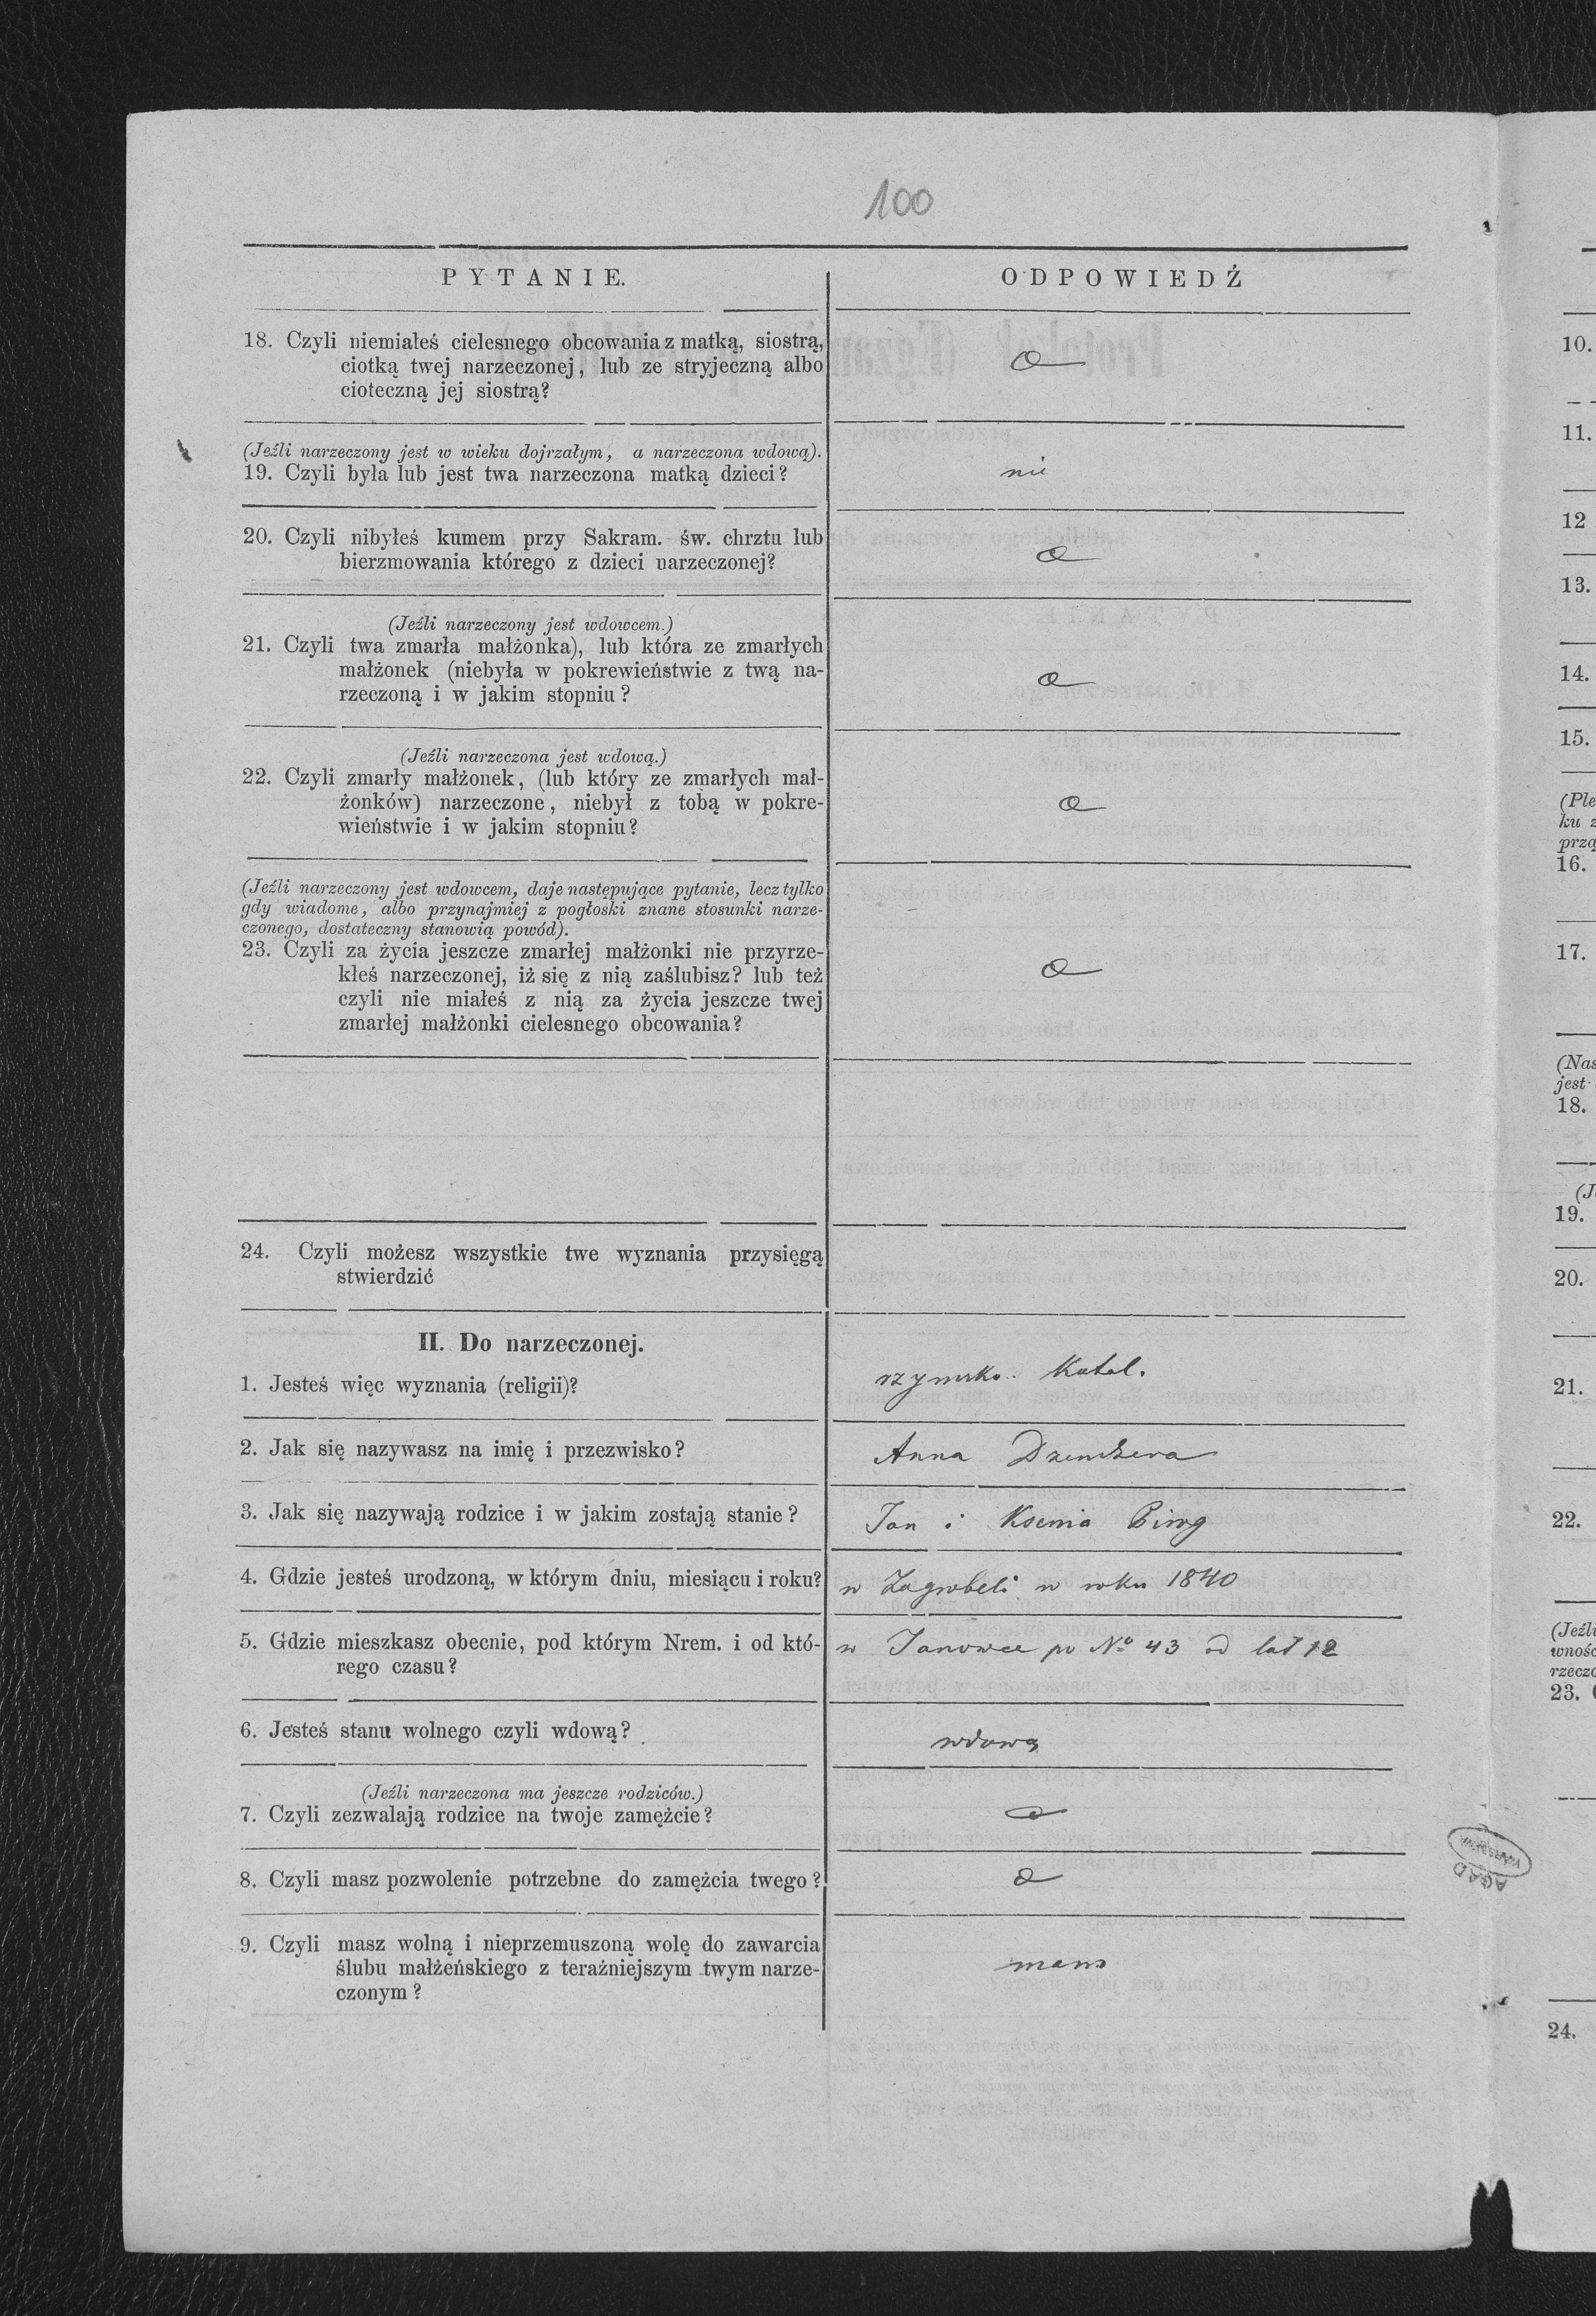 100
PYTANIE.
ODPOWIEDŹ
18. Czyli niemiałeś cielesnego obcowania z matką, siostrą,
ciotką twej narzeczonej, lub ze stryjeczną albo
cioteczną jej siostrą?
(Jeźli narzeczony jest w wieku dojrzałym, a narzeczona wdową).
19. Czyli była lub jest twa narzeczona matką dzieci?
nie
20. Czyli nibyłeś kumem przy Sakram. św. chrztu lub
bierzmowania którego z dzieci narzeczonej?
(Jeźli narzeczony jest wdowcem.)
21. Czyli twa zmarła małżonka), lub która ze zmarłych
małżonek (niebyła w pokrewieństwie z twą na-
rzeczoną i w jakim stopniu?
(Jeźli narzeczona jest wdową.)
22. Czyli zmarły małżonek, (lub który ze zmarłych mał-
żonków) narzeczone, niebył z tobą w pokre-
wieństwie i w jakim stopniu?
(Jeźli narzeczony jest wdowcem, daje następujące pytanie, lecz tylko
gdy wiadome, albo przynajmiej z pogłoski znane stosunki narze-
czonego, dostateczny stanowią powód).
23. Czyli za życia jeszcze zmarłej małżonki nie przyrze-
kłeś narzeczonej, iż się z nią zaślubisz? lub też
czyli nie miałeś z nią za życia jeszcze twej
zmarłej małżonki cielesnego obcowania?
24. Czyli możesz wszystkie twe wyznania przysięgą
stwierdzić
II. Do narzeczonej.
1. Jesteś więc wyznania (religii)?
rzymsko. Katol.
2. Jak się nazywasz na imię i przezwisko?
Anna
3. Jak się nazywają rodzice i w jakim zostają stanie?
Jan i Ksenia Pirog
4. Gdzie jesteś urodzoną, w którym dniu, miesiącu i roku?
w Zagrobeli w roku 1840
5. Gdzie mieszkasz obecnie, pod którym Nrem. i od któ-
rego czasu?
w Janowce po No 43 od lat 12
6. Jesteś stanu wolnego czyli wdową?
wdową
(Jeźli narzeczona ma jeszcze rodziców.)
7. Czyli zezwalają rodzice na twoje zamężcie?
8. Czyli masz pozwolenie potrzebne do zamężcia twego?
9. Czyli masz wolną i nieprzemuszoną wolę do zawarcia
ślubu małżeńskiego z teraźniejszym twym narze-
czonym?
mam
10.
11.
12
13.
14.
15.
(Ple
ku z
przą
16.
17.
(Nas
jest
18.
(J
19.
20.
21.
22.
(Jeźli
wnośc
rzeczo
23.
24.
AGAD
WARSZAWA